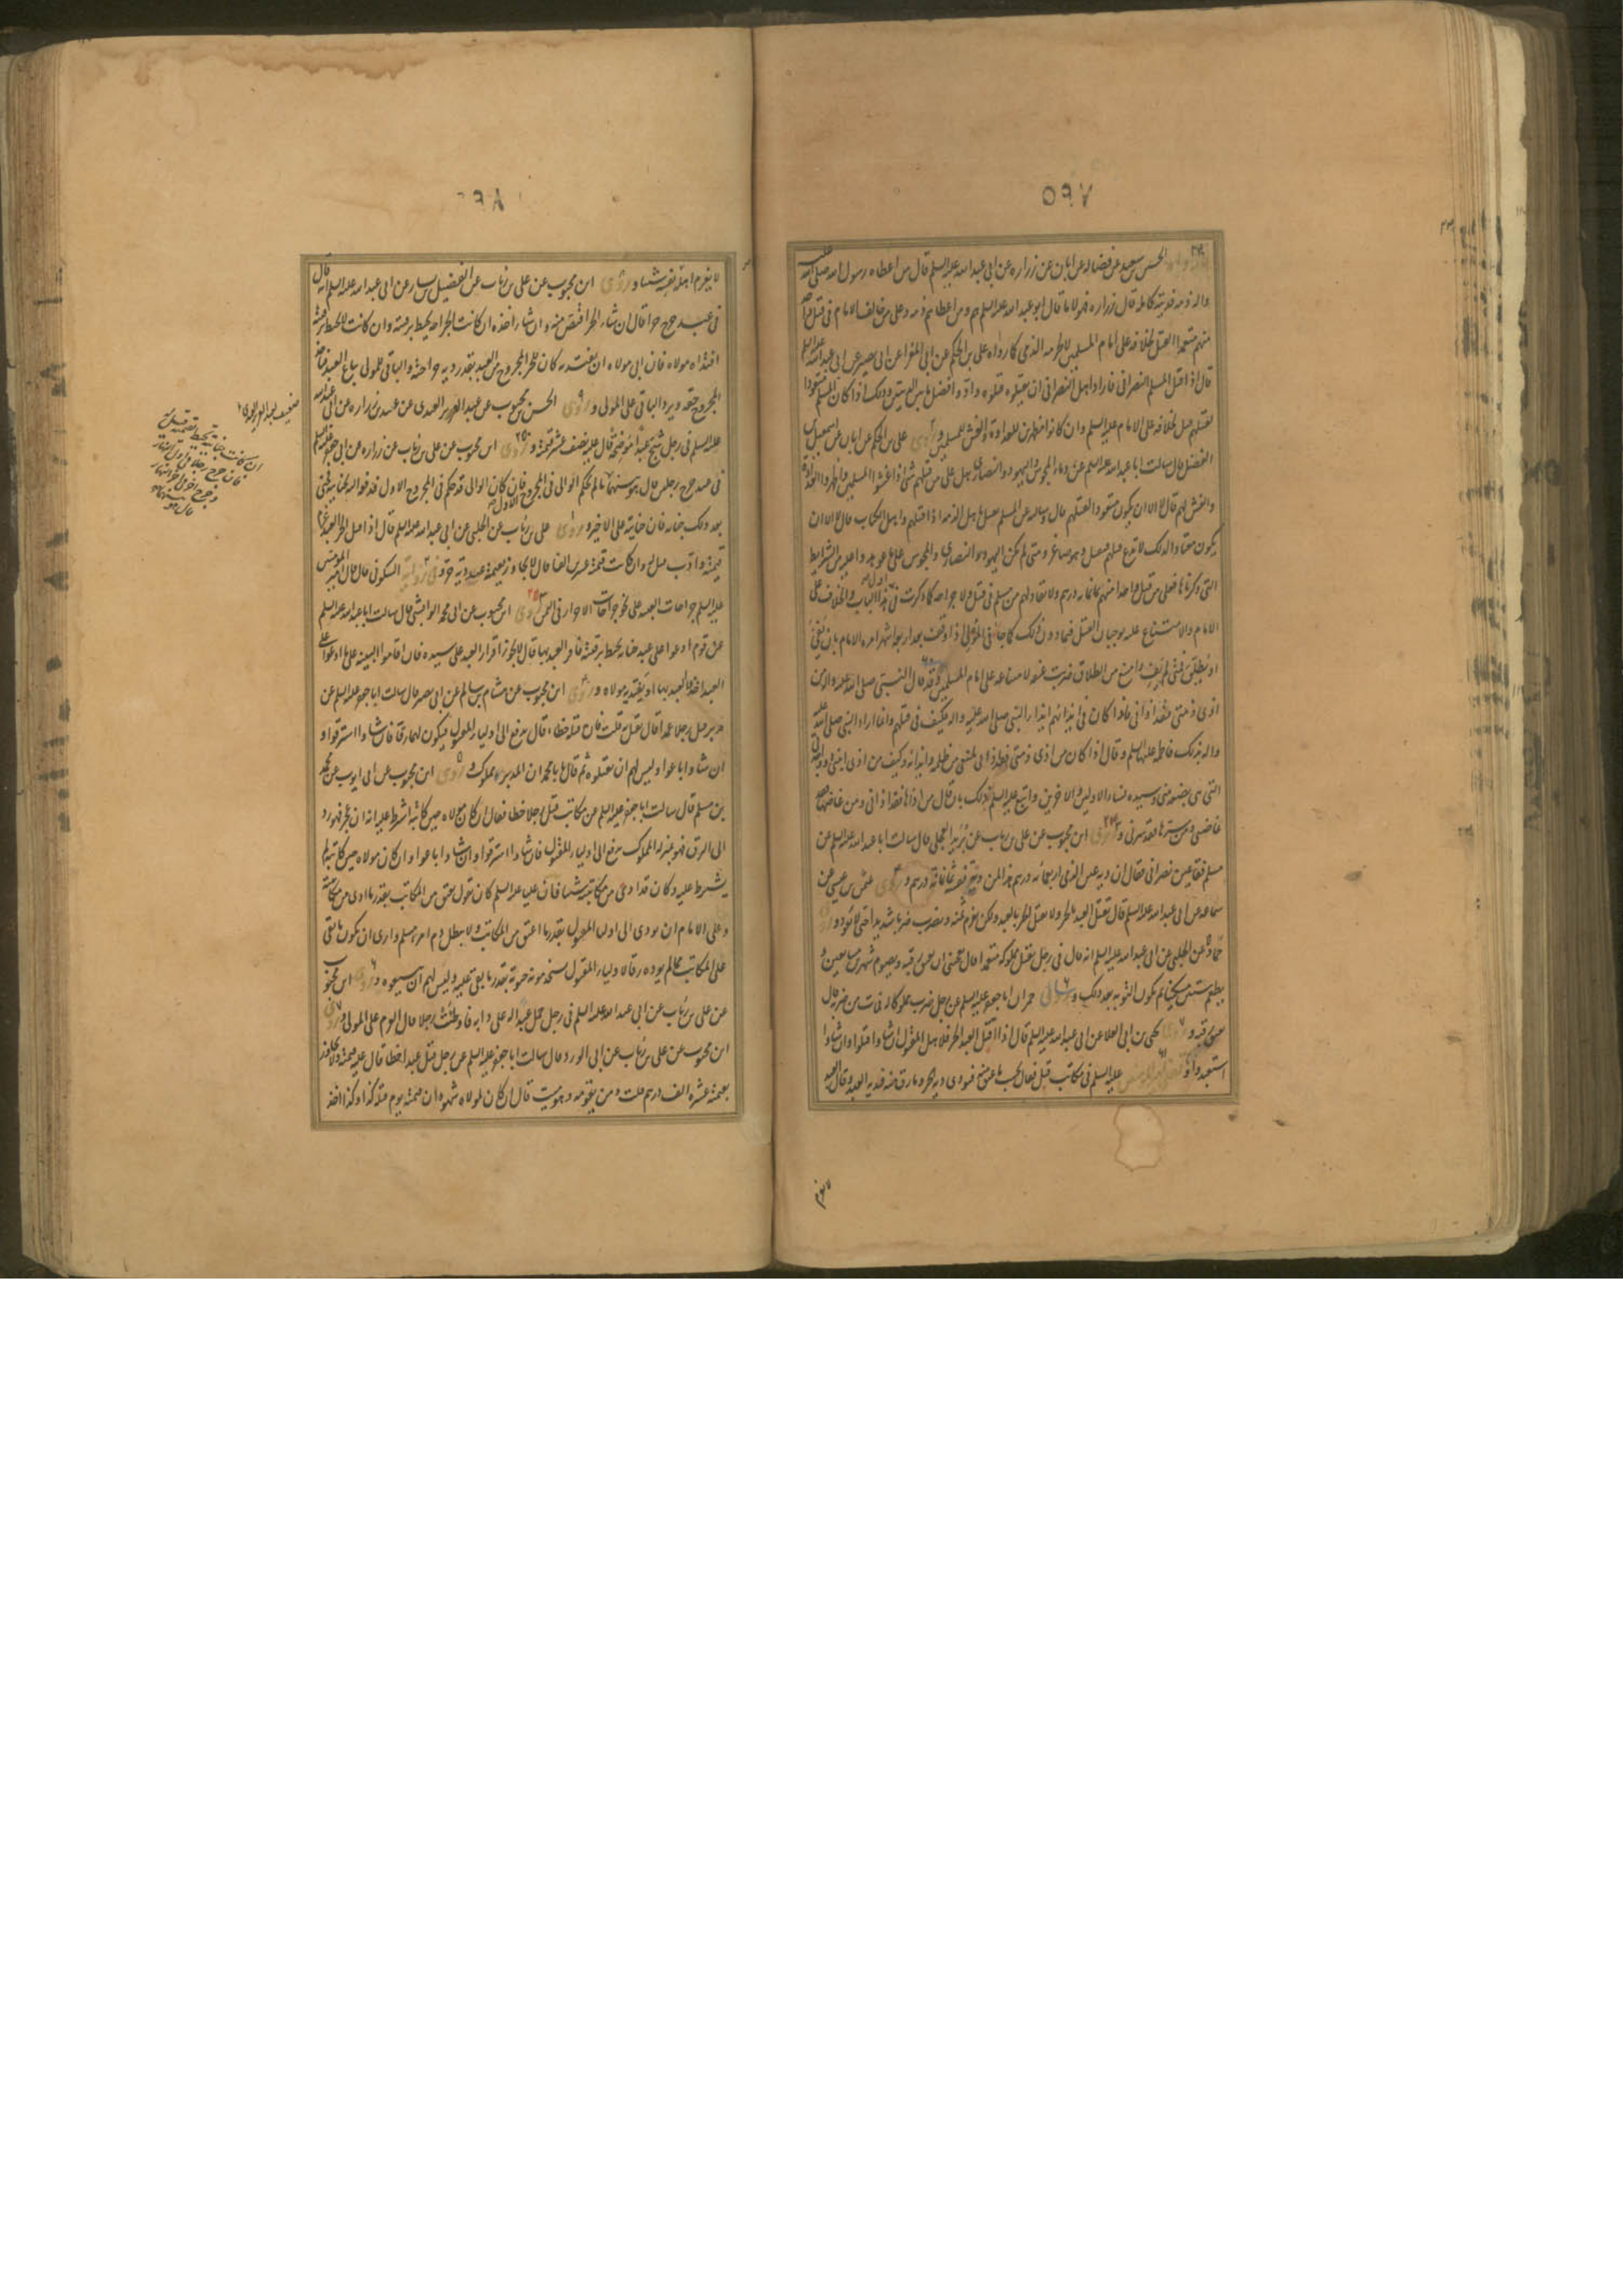 ٥٩٧
الحسين بن سعيد عن فضالة عن ابان عن زراره عن ابي عبد الله عليه السلم قال من اعطاه رسول الله صلى الله عليه
واله ذمة فديته كاملة قال زراره فهولاء ما قال ابو عبد الله عليه السلم هم من اعطاهم ذمة وعلى من خالف الامام في قتل واحد
منهم متعمدا القتل لخلافه على امام المسلمين لا لحرمة الذمي كما رواه علي بن الحكم عن ابي المغرا عن ابي بصير عن ابي عبد الله عليه السلم
قال اذا قتل المسلم النصراني فاراد اهل النصراني ان يقتلوه قتلوه وادوا فضل ما بين الديتين وذلك اذا كان المسلم متعودا
لقتلهم قتل لخلافه على الامام عليه السلم وان كانوا مظهرين للعداوة والغش للمسلمين وروى علي بن الحكم عن ابان عن اسمعيل بن
الفضل قال سالت ابا عبد الله عليه السلم عن دماء المجوس واليهود والنصارى هل على من قتلهم شئ اذا غشوا المسلمين واظهروا العداوة
والغش لهم قال لا الا ان يكون متعودا لقتلهم قال وسالته عن المسلم هل يقتل باهل الذمة اذا قتلهم واهل الكتاب قال لا الا ان
يكون معتادا لذلك لا يدع قتلهم فيقتل وهو صاغر ومتى لم يكن اليهود والنصارى والمجوس على ما عوهدوا عليه من الشرايط
التي ذكرناها فعلى من قتل واحدا منهم ثمانمائة درهم ولا يقاد لهم من مسلم في قتل ولا جراحة كما ذكرت في اول هذا الباب والخلاف على
الامام والامتناع عليه يوجبان القتل فيما دون ذلك كما جاء في المؤلي اذا وقف بعد اربعة اشهر امره الامام بان يفئ
او يطلق فمتى لم يفئ وامتنع من الطلاق ضربت عنقه لامتناعه على امام المسلمين وقد قال النبي صلى الله عليه واله من
اذى ذمتي فقد اذاني فاذا كان في ايذائهم ايذاء النبي صلى الله عليه واله فكيف في قتلهم وانما اراد النبي صلى الله عليه
واله بذلك فاطمة عليها السلم وقال اذا كان من اذى ذمتي فقد اذاني
التي هي بضعة مني وسيدة نساء الاولين والاخرين واتبع عليه السلم ذلك بان قال من اذاها فقد اذاني ومن غاضها فقد
غاضني ومن سرها فقد سرني وروى ابن محبوب عن علي بن رئاب عن بريد العجلي قال سالت ابا عبد الله عليه السلم عن
مسلم فقا عين نصراني فقال ان دية عين الذمي اربعمائة درهم هذا لمن
سماعة عن ابي عبد الله عليه السلم قال يقتل العبد بالحر ولا يقتل الحر بالعبد ولكن يغرم ثمنه ويضرب ضربا شديدا حتى لا يعود وروى
حماد عن الحلبي عن ابي عبد الله عليه السلم انه قال في رجل يقتل مملوكه متعمدا قال يعجبني ان يعتق رقبة ويصوم شهرين متتابعين و
يطعم ستين مسكينا ثم يكون التوبة بعد ذلك وروى حمران عن ابي جعفر عليه السلم عن رجل ضرب مملوكا له فمات من ضربه قال
يعتق رقبة وروى يحيى بن ابي العلا عن ابي عبد الله عليه السلم قال اذا قتل العبد الحر فلاهل المقتول ان شاوا قتلوا وان شاوا
استعبدوا وقضى امير المؤمنين عليه السلم في مكاتب قتل فقال يحسب ما عتق منه فيودى دية الحر وما رق منه فدية العبد وقال العبد
لا يغرم
٥٩٨
لا يغرم اهله وراء نفسه شيئا وروى ابن محبوب عن علي بن رئاب عن الفضيل بن يسار عن ابي عبد الله عليه السلم انه قال
في عبد جرح حرا قال ان شاء الحر اقتص منه وان شاء اخذه ان كانت الجراحة يحيط برقبته وان كانت لا يحيط برقبته
افتداه مولاه فان ابى مولاه ان يفتديه كان للحر المجروح من العبد بقدر دية جراحته والباقي للمولى يباع العبد فياخذ
المجروح حقه ويرد الباقي على المولى وروى الحسن بن محبوب عن عبد العزيز العبدي عن عبيد بن زراره عن ابي عبد الله
عليه السلم في رجل شج عبدا موضحة قال عليه نصف عشر قيمته وروى ابن محبوب عن علي بن رئاب عن زراره عن ابي جعفر عليه السلم
في عبد جرح رجلين قال هو بينهما ما لم يحكم الوالي في المجروح الاول قال فان كان الوالي قد حكم في المجروح الاول فدفعه اليه بجنايته فجنى
بعد ذلك جناية فان جنايته على الاخير وروى علي بن رئاب عن الحلبي عن ابي عبد الله عليه السلم قال اذا قتل الحر العبد غرم
قيمته وادب قيل وان كانت قيمته عشرين الفا قال لا يجاوز بقيمة عبد دية حر وفي رواية السكوني قال قال امير المؤمنين
عليه السلم جراحات العبيد على نحو جراحات الاحرار في الثمن وروى ابن محبوب عن ابي محمد الوابشي قال سالت ابا عبد الله عليه السلم
عن قوم ادعوا على عبد جناية تحيط برقبته فاقر العبد بها قال لا يجوز اقرار العبد على سيده فان اقاموا البينة على ما ادعوا على
العبد اخذ العبد بها او يفتديه مولاه وروى ابن محبوب عن هشام بن سالم عن ابي بصير قال سالت ابا جعفر عليه السلم عن
مدبر قتل رجلا عمدا قال يقتل به قلت فان قتله خطاء قال يدفع الى اولياء المقتول فيكون لهم رقا فان شاوا استرقوا و
ان شاوا باعوا وليس لهم ان يقتلوه ثم قال يا با محمد ان المدبر مملوك وروى ابن محبوب عن ابي ايوب عن محمد
بن مسلم قال سالت ابا جعفر عليه السلم عن مكاتب قتل رجلا خطا فقال ان كان مولاه حين كاتبه اشترط عليه انه ان عجز فهو رد
الى الرق فهو بمنزلة المملوك يدفع الى اولياء المقتول فان شاوا استرقوا وان شاوا باعوا وان كان مولاه حين كاتبه لم
يشترط عليه وكان قد ادى من مكاتبته شيئا فان عليا عليه السلم كان يقول يعتق من المكاتب بقدر ما ادى من مكاتبته
وعلى الامام ان يودي الى اولياء المقتول بقدر ما اعتق من المكاتب ولا يبطل دم امرء مسلم وارى ان يكون ما بقي
على المكاتب مما لم يوده رقا لاولياء المقتول يستخدمونه حيوته بقدر ما بقي عليه وليس لهم ان يبيعوه وروى ابن محبوب
عن علي بن رئاب عن ابي عبد الله عليه السلم في رجل حمل عبدا له على دابة فاوطئت رجلا قال الغرم على المولى وروى
ابن محبوب عن علي بن رئاب عن ابي الورد قال سالت ابا جعفر عليه السلم عن رجل قتل عبدا خطا قال عليه قيمته ولا يجاوز
بقيمته عشرة الف درهم قلت ومن يقومه وهو ميت قال ان كان لمولاه شهود ان قيمته يوم قتله كذا وكذا اخذ
ان كانت جنايته تحيط بقيمته قيل له
فان جرح رجلا في اول النهار
وجرح اخر في اخر النهار
قال هو بينهما